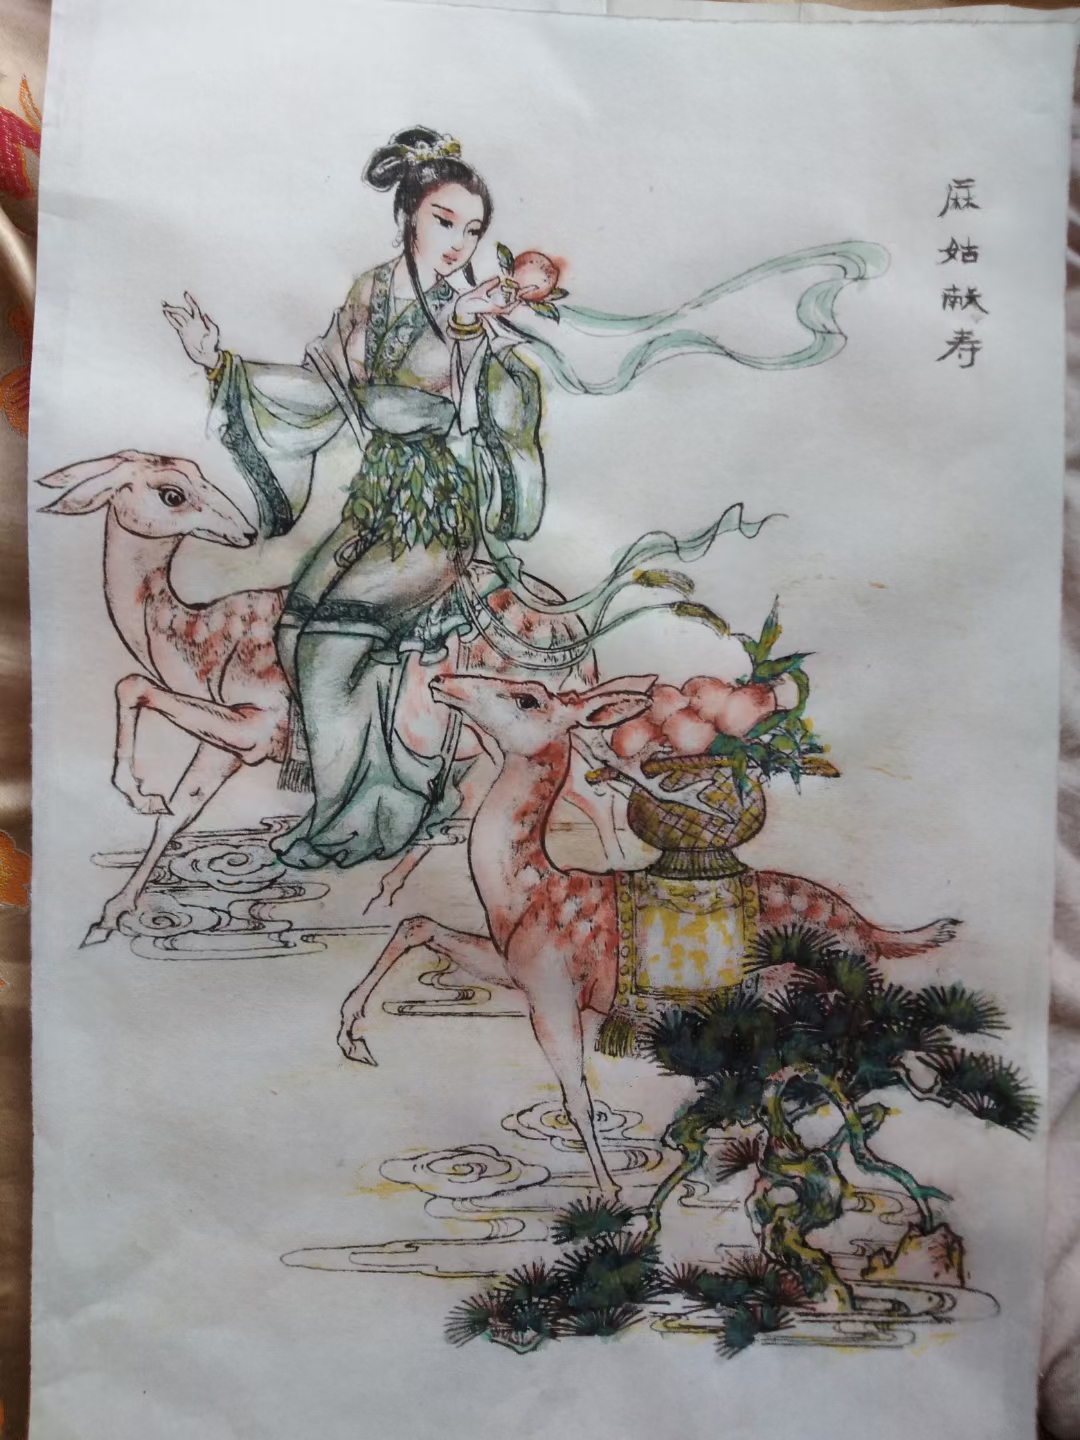 麻姑献寿